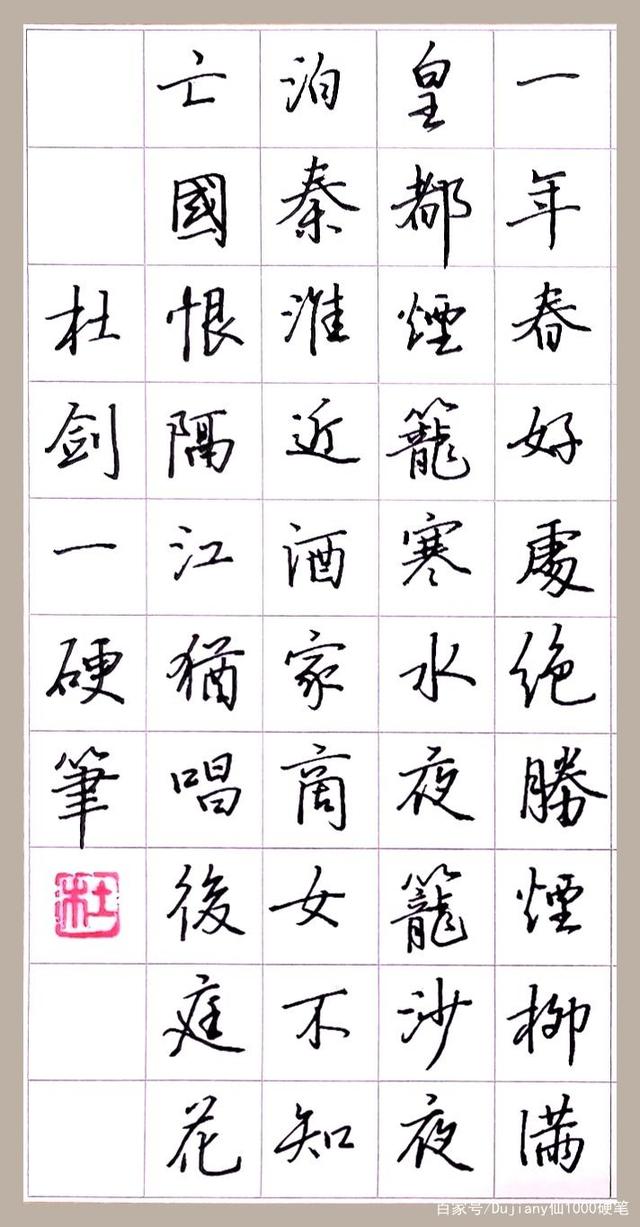 一年春好處絶勝煙柳滿
皇都煙籠寒水夜籠沙夜
泊秦淮近酒家商女不知
亡國恨隔江猶唱後庭花
杜剑一硬筆
杜
百家号/Dujiany仙1000硬笔